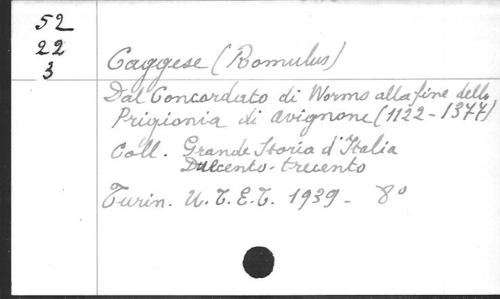 52
22
3
Caggese (Romulus)
Dal Concordato di Worms alla fine della
Prigionia di Avignone (1122-1377)
Coll. Grande Storia d'Italia
Duecento-trecento
Turin. U.T.E.T. 1939 - 8°